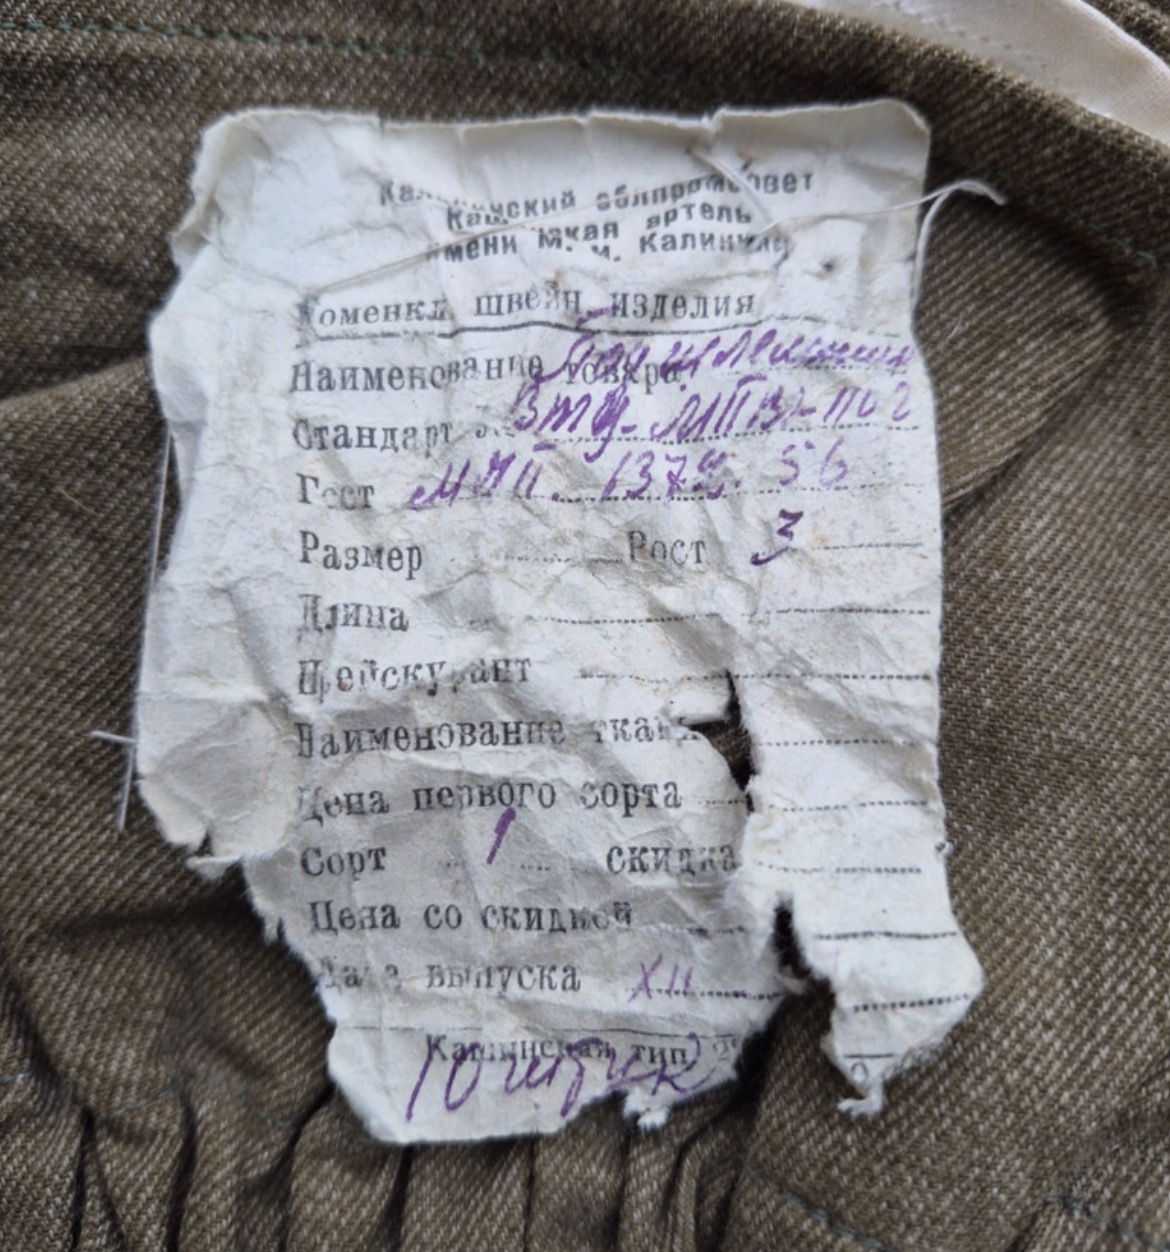 Калининский облпромсовет
Кашинская артель
имени М. И. Калинина
Номенкл. швейн. изделия
Наименование товара
Стандарт №
Гост МПП. 1372. 56
Размер Рост 3
Длина
Прейскурант
Наименование ткани
Цена первого сорта
Сорт 1 скидка
Цена со скидкой
Дата выпуска XII
Кашинская тип.
10 штук